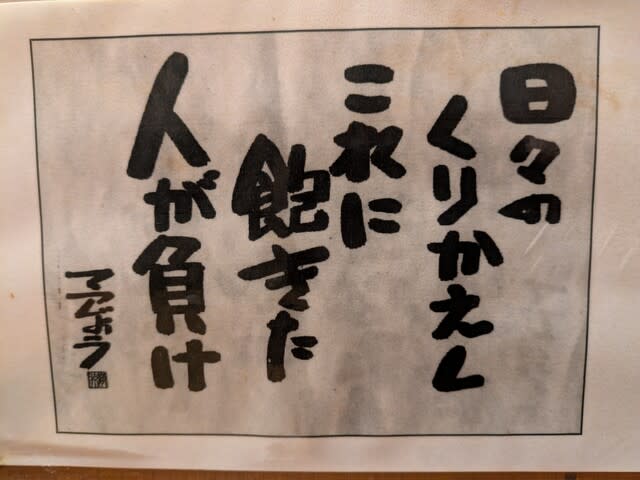 日々の
くりかえし
これに
飽きた
人が負け
てつじょう